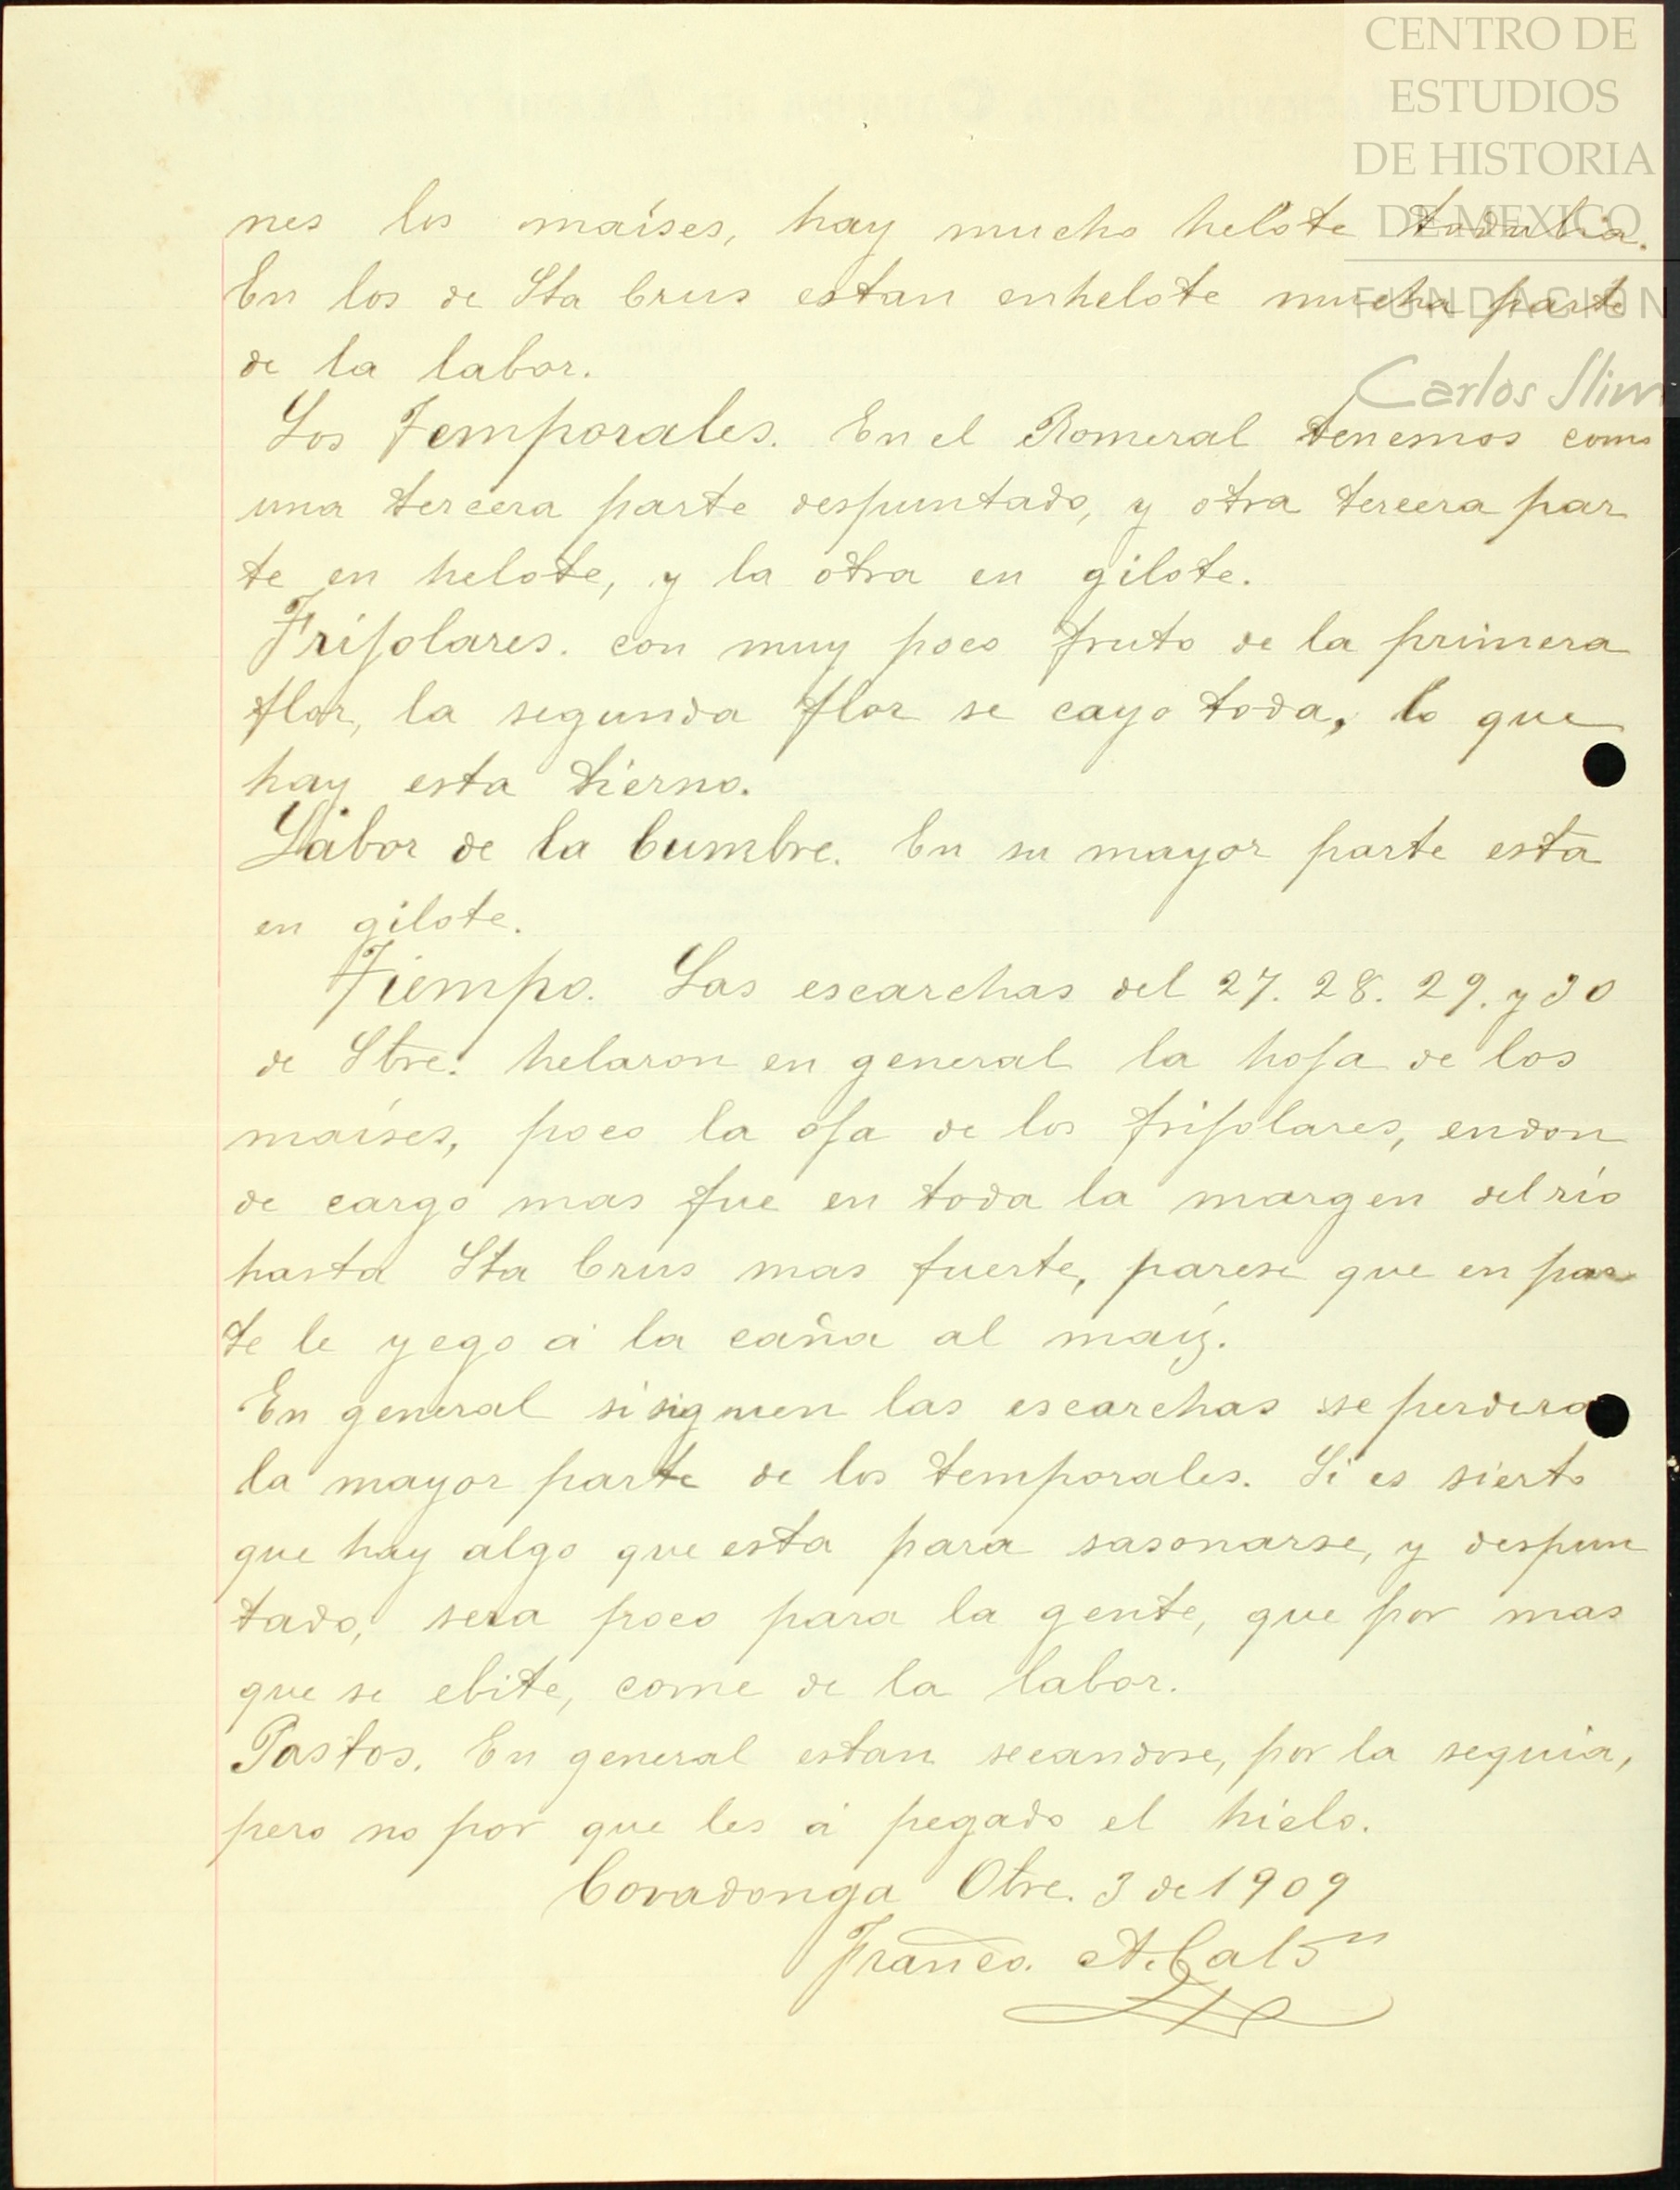 CENTRO DE
ESTUDIOS
DE HISTORIA
DE MEXICO
FUNDACION
Carlos Slim
nes los maíses, hay mucho helote todabia.
En los de Sta Crus estan enhelote mucha parte
de la labor.
Los Temporales. En el Romeral tenemos como
una tercera parte despuntado, y otra tercera par
te en helote, y la otra en gilote.
Frijolares. con muy poco fruto de la primera
flor, la segunda flor se cayo toda, lo que
hay esta tierno.
Labor de la Cumbre. En su mayor parte esta
en gilote.
Tiempo. Las escarchas del 27. 28. 29. y 30
de Stre. helaron en general la hoja de los
maíses, poco la oja de los frijolares, endon
de cargo mas fue en toda la margen del río
hasta Sta Crus mas fuerte, parese que en par
te le yego á la caña al maíz.
En general si siguen las escarchas se perdera
la mayor parte de los temporales. Si es sierto
que hay algo que esta para sasonarse, y despun
tado, sera poco para la gente, que por mas
que se ebite, come de la labor.
Pastos. En general estan secandose, por la sequia,
pero no por que les á pegado el hielo.
Covadonga Obre. 3 de 1909
Franco. A. Cal